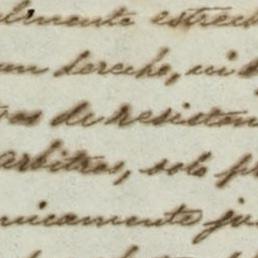 almente estrech
un derecho, ni
os de resisten
arbitros, solo p
nicamente ju